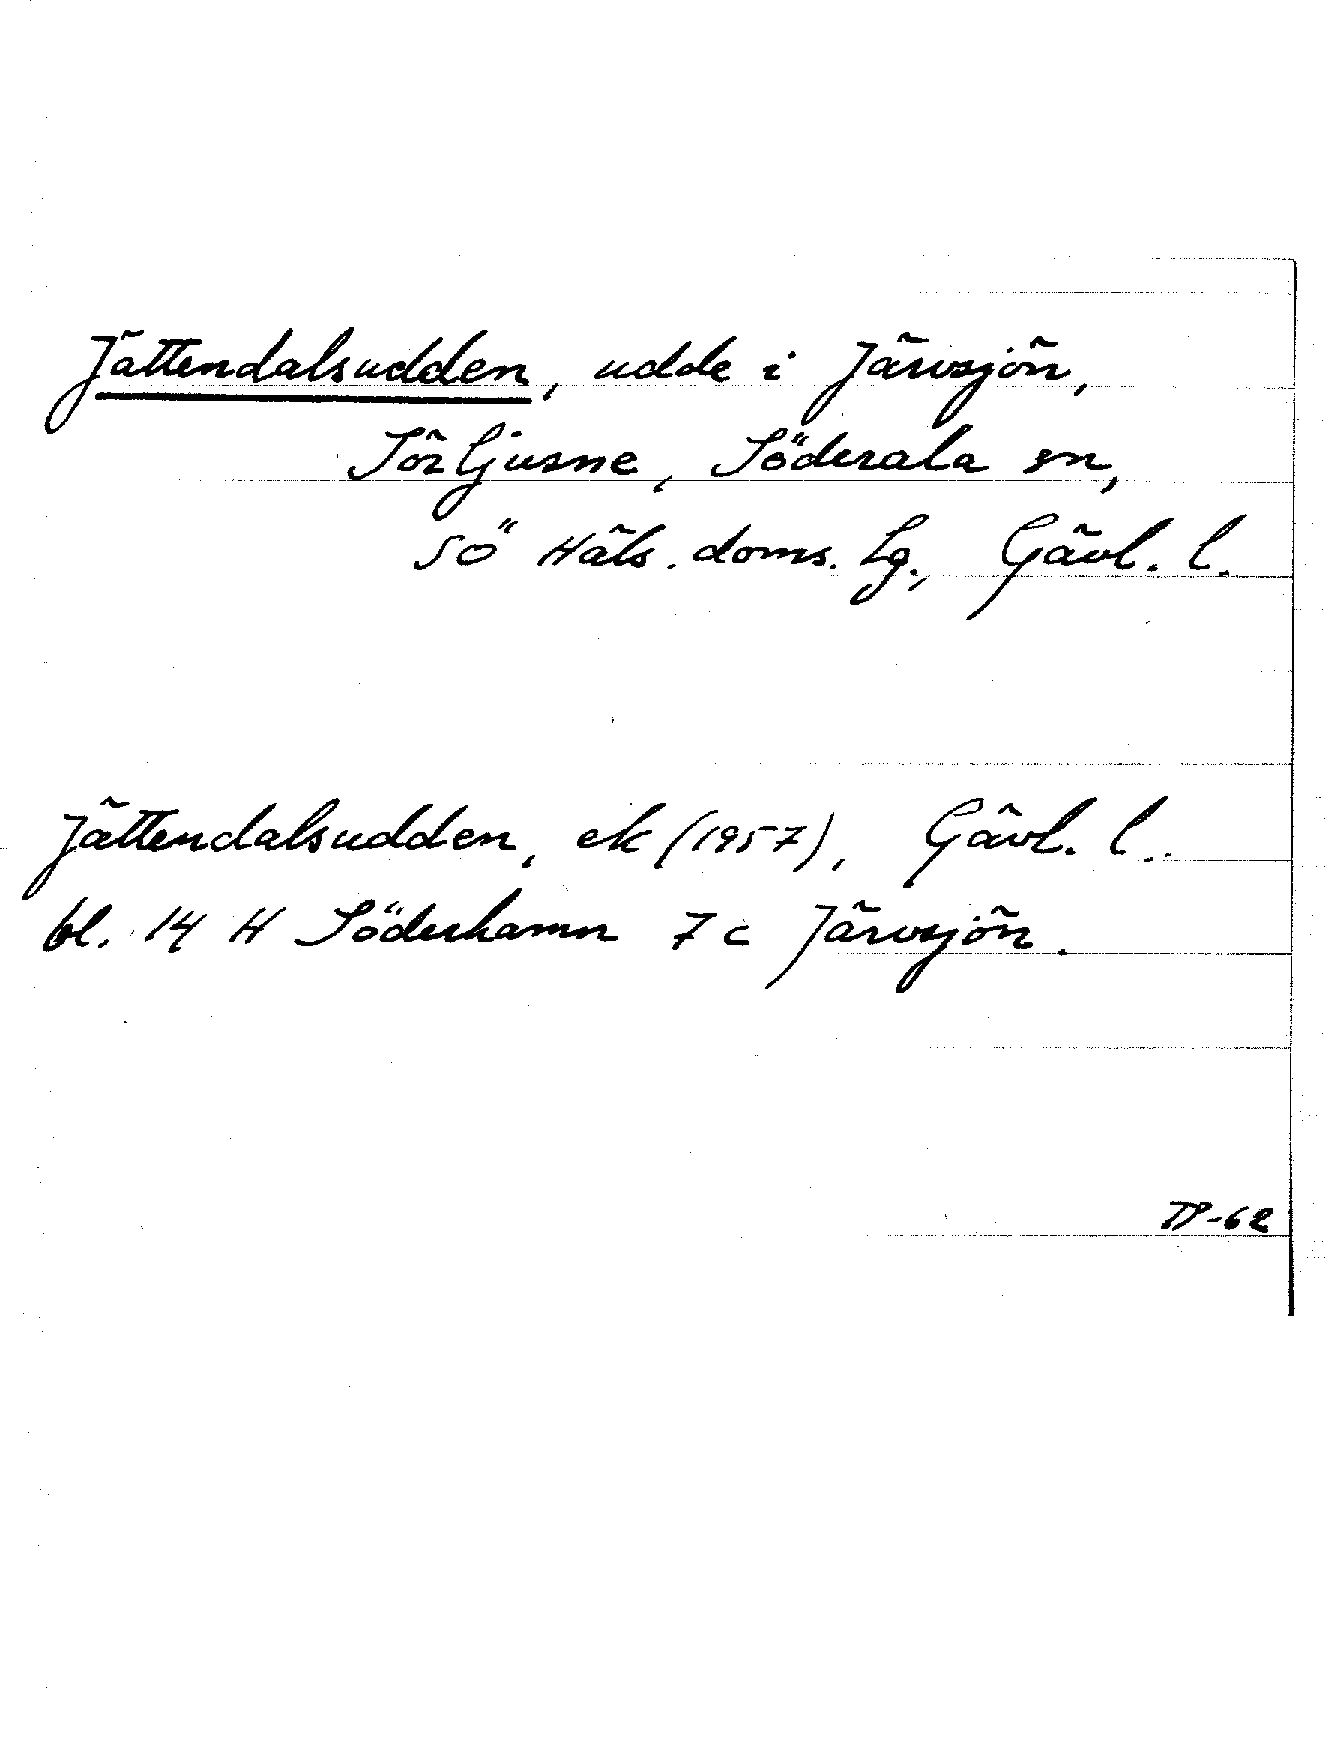 Jättendalsudden, udde i Järvsjön,
Sör Ljusne, Söderala sn,
SÖ Häls. doms. lg., Gävl. l.
Jättendalsudden, ek (1957), Gävl. l.
bl. 14 H Söderhamn 7 c Järvsjön.
TP-62